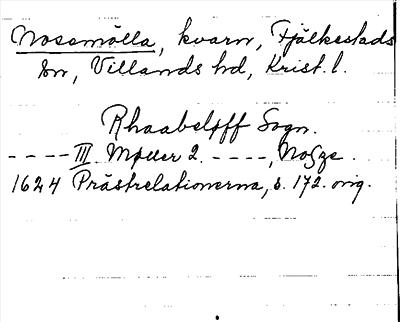 Nosamölla, kvarn, Fjälkestads
sn, Villands hd, Krist. l.
Rhaabeløff Sogn.
----III. Møller 2. ----, Nosze.
1624 Prästrelationerna, s. 172. orig.